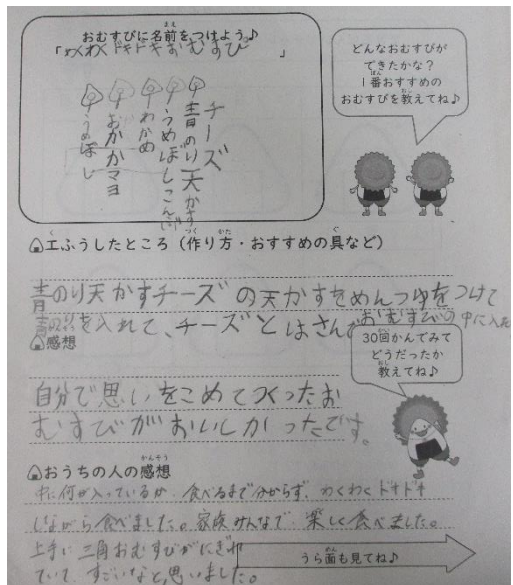 おむすびに名前をつけよう♪
「わくわくドキドキおむすび」
チーズ
青のり天かす
うめぼしこんぶ
わかめ
おかかマヨ
うめぼし
どんなおむすびが
できたかな？
1番おすすめの
おむすびを教えてね♪
工ふうしたところ（作り方・おすすめの具など）
青のり天かすチーズの天かすをめんつゆをつけて
青のりを入れて、チーズとはさんでおむすびの中に入れ
感想
30回かんでみて
どうだったか
教えてね♪
自分で思いをこめてつくったお
むすびがおいしかったです。
おうちの人の感想
中に何が入っているか、食べるまで分からず、わくわくドキドキ
しながら食べました。家族みんなで、楽しく食べました。
上手に三角おむすびがにぎれ
ていて、すごいなと思いました。
うら面も見てね♪